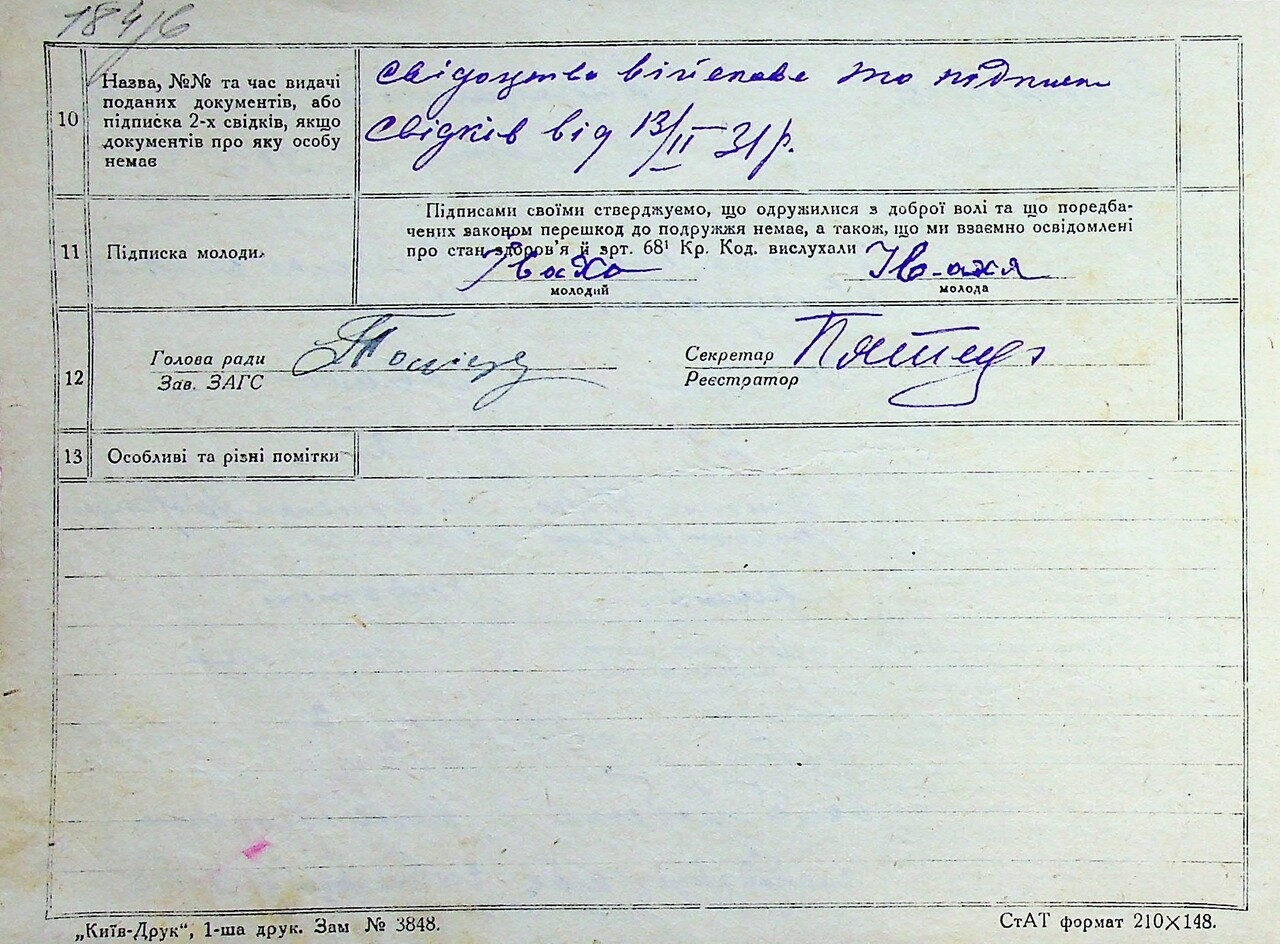 184/6
10
Назва, №№ та час видачі
поданих документів, або
підписка 2-х свідків, якщо
документів про яку особу
немає
свідоцтво військове та підписка
свідків від 13/II 31 р.
11
Підписка молоди
Підписами своїми стверджуємо, що одружилися з доброї волі та що передба-
чених законом перешкод до подружжя немає, а також, що ми взаємно освідомлені
про стан здоров'я й арт. 68¹ Кр. Код. вислухали
молодий
молода
12
Голова ради
Зав. ЗАГС
Секретар
Реєстратор
13
Особливі та різні помітки
„Київ-Друк“, 1-ша друк. Зам № 3848.
СтАТ формат 210×148.